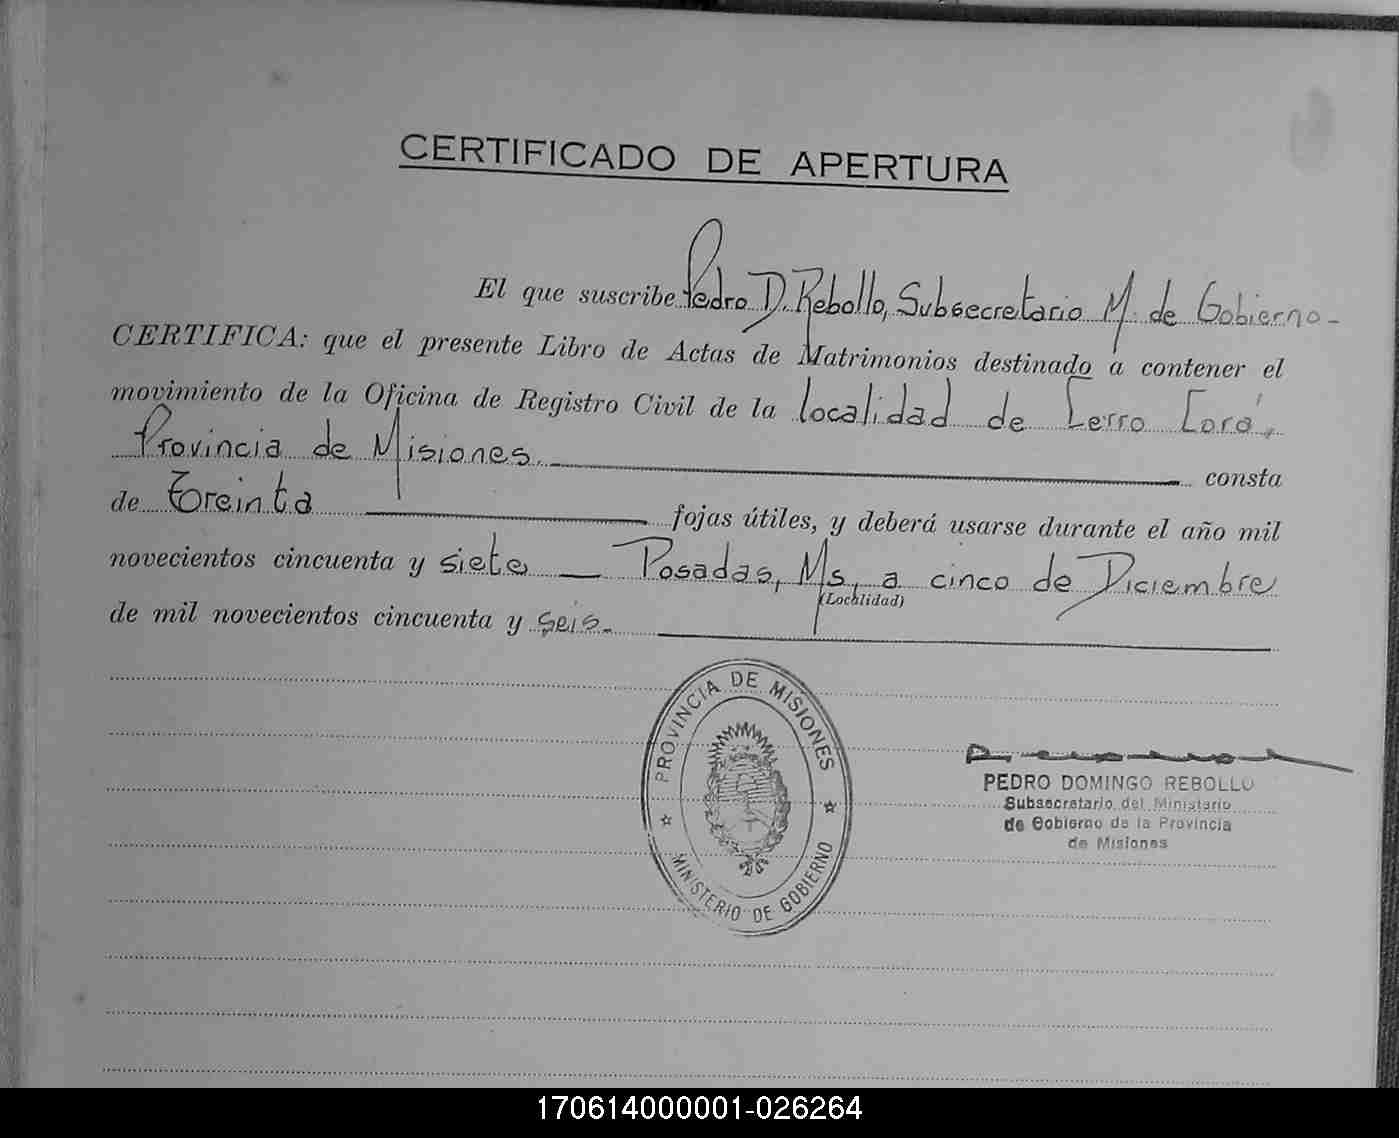 CERTIFICADO DE APERTURA
El que suscribe Pedro D. Rebollo, Subsecretario M. de Gobierno-
CERTIFICA: que el presente Libro de Actas de Matrimonios destinado a contener el
movimiento de la Oficina de Registro Civil de la localidad de Cerro Corá,
Provincia de Misiones. consta
de treinta fojas útiles, y deberá usarse durante el año mil
novecientos cincuenta y siete Posadas, Ms, a cinco de Diciembre
(Localidad)
de mil novecientos cincuenta y seis.
PROVINCIA DE MISIONES
MINISTERIO DE GOBIERNO
PEDRO DOMINGO REBOLLO
Subsecretario del Ministerio
de Gobierno de la Provincia
de Misiones
170614000001-026264